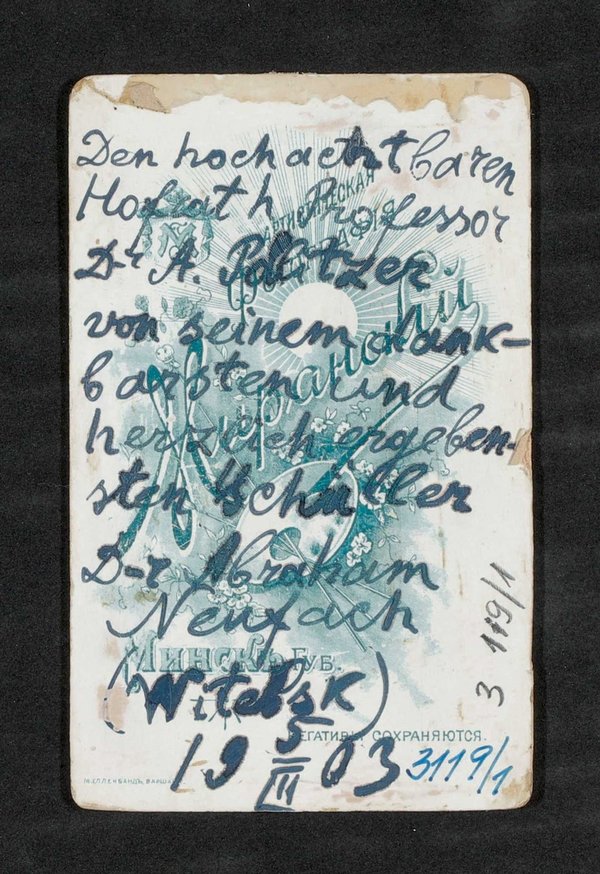 Den hochachtbaren
Hofrath Professor
D-r A. Politzer
von seinem dank-
barsten und
herzlich ergeben-
sten Schuller
D-r Abraham
Neufach
(Witebsk)
19 5/III 03
АРТИСТИЧЕСКАЯ
ФОТОГРАФІЯ
МИНСКЪ ГУБ.
НЕГАТИВЫ СОХРАНЯЮТСЯ.
3119/1
3 119/1